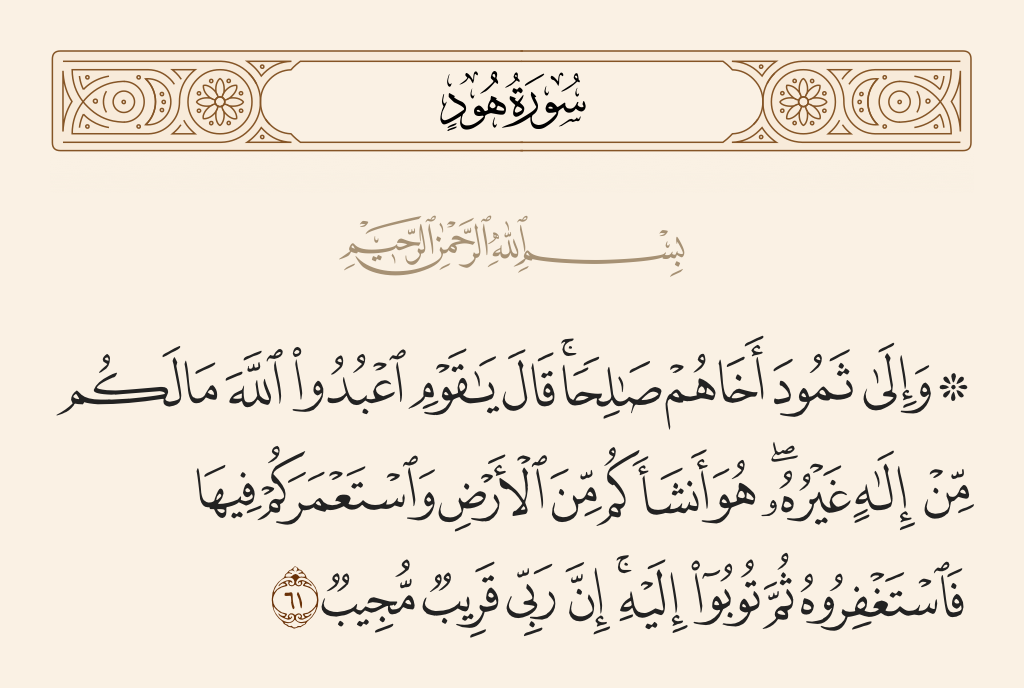 سُورَةُ هُودٍ
بِسْمِ ٱللَّهِ ٱلرَّحْمَٰنِ ٱلرَّحِيمِ
۞ وَإِلَىٰ ثَمُودَ أَخَاهُمْ صَٰلِحًا ۚ قَالَ يَٰقَوْمِ ٱعْبُدُوا۟ ٱللَّهَ مَا لَكُم
مِّنْ إِلَٰهٍ غَيْرُهُۥ ۖ هُوَ أَنشَأَكُم مِّنَ ٱلْأَرْضِ وَٱسْتَعْمَرَكُمْ فِيهَا
فَٱسْتَغْفِرُوهُ ثُمَّ تُوبُوٓا۟ إِلَيْهِ ۚ إِنَّ رَبِّى قَرِيبٌ مُّجِيبٌ ٦١